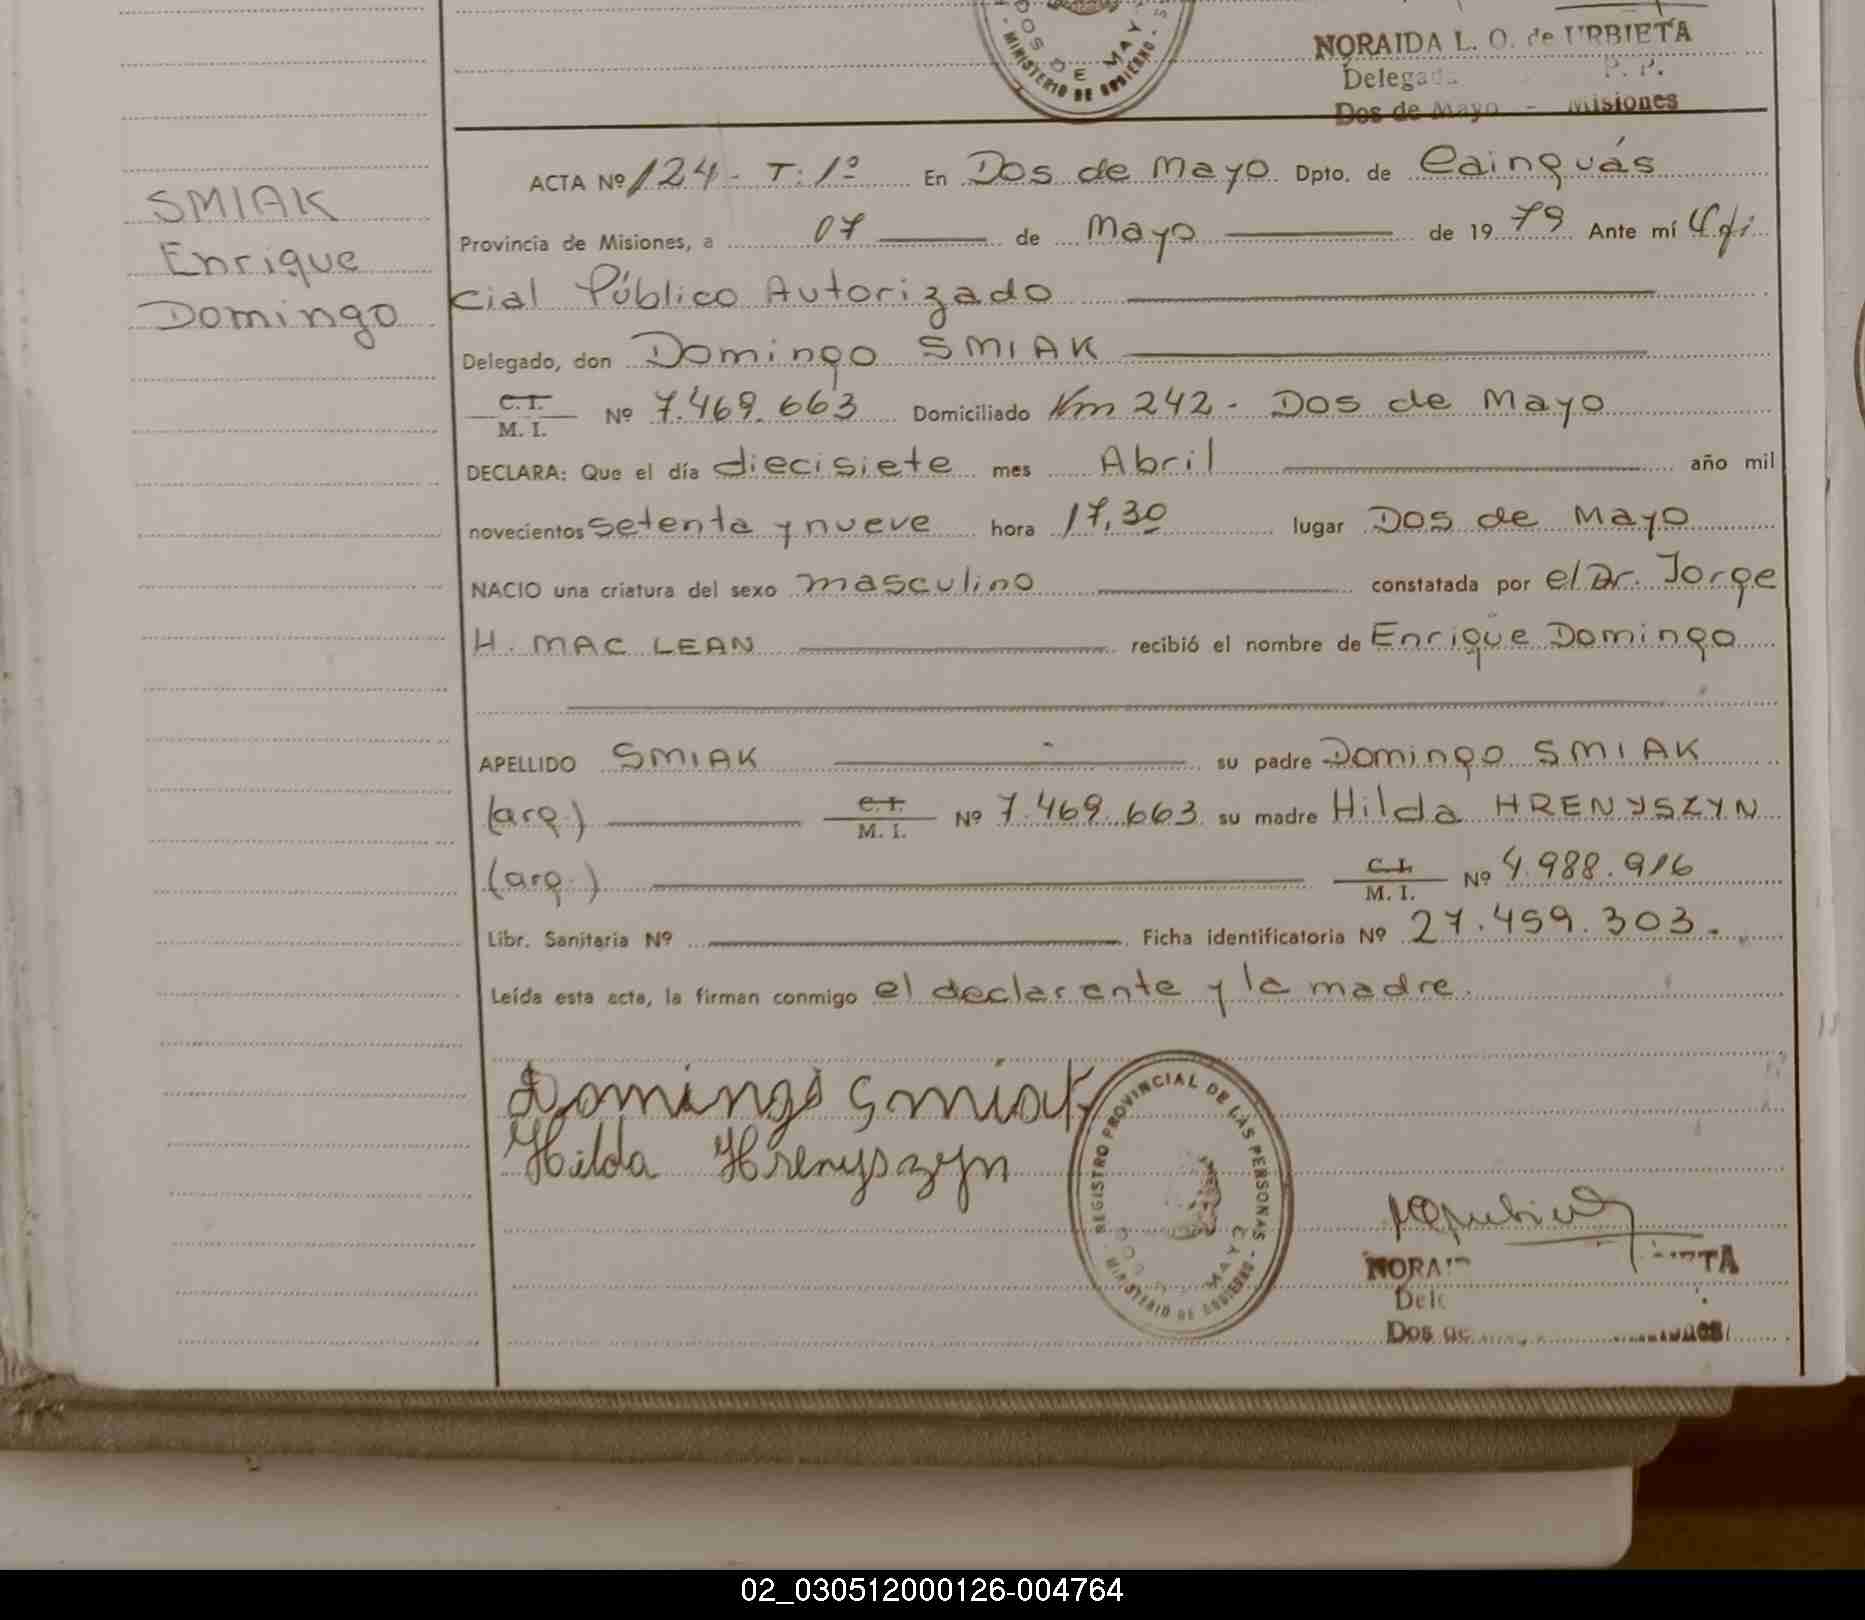 DOS DE MAYO
MINISTERIO DE GOBIERNO
NORAIDA L. O. de URBIETA
Delegada P. P.
Dos de Mayo - Misiones
SMIAK
Enrique
Domingo
ACTA Nº 124 - T: 1º En Dos de Mayo Dpto. de Cainguás
Provincia de Misiones, a 07 de Mayo de 1979 Ante mí Ofi
cial Público Autorizado
Delegado, don Domingo SMIAK
C.I. / M. I. Nº 7.469.663 Domiciliado Km 242 - Dos de Mayo
DECLARA: Que el día diecisiete mes Abril año mil
novecientos setenta y nueve hora 17,30 lugar Dos de Mayo
NACIO una criatura del sexo masculino constatada por el Dr. Jorge
H. MAC LEAN recibió el nombre de Enrique Domingo
APELLIDO SMIAK su padre Domingo SMIAK
(arg.) C.I. / M. I. Nº 7.469.663 su madre Hilda HRENYSZYN
(arg.) C.I. / M. I. Nº 4.988.916
Libr. Sanitaria Nº Ficha identificatoria Nº 27.459.303.
Leída esta acta, la firman conmigo el declarante y la madre.
Domingo Smiak
Hilda Hrenyszyn
REGISTRO PROVINCIAL DE LAS PERSONAS
DOS MAYO
MINISTERIO DE GOBIERNO
02_030512000126-004764